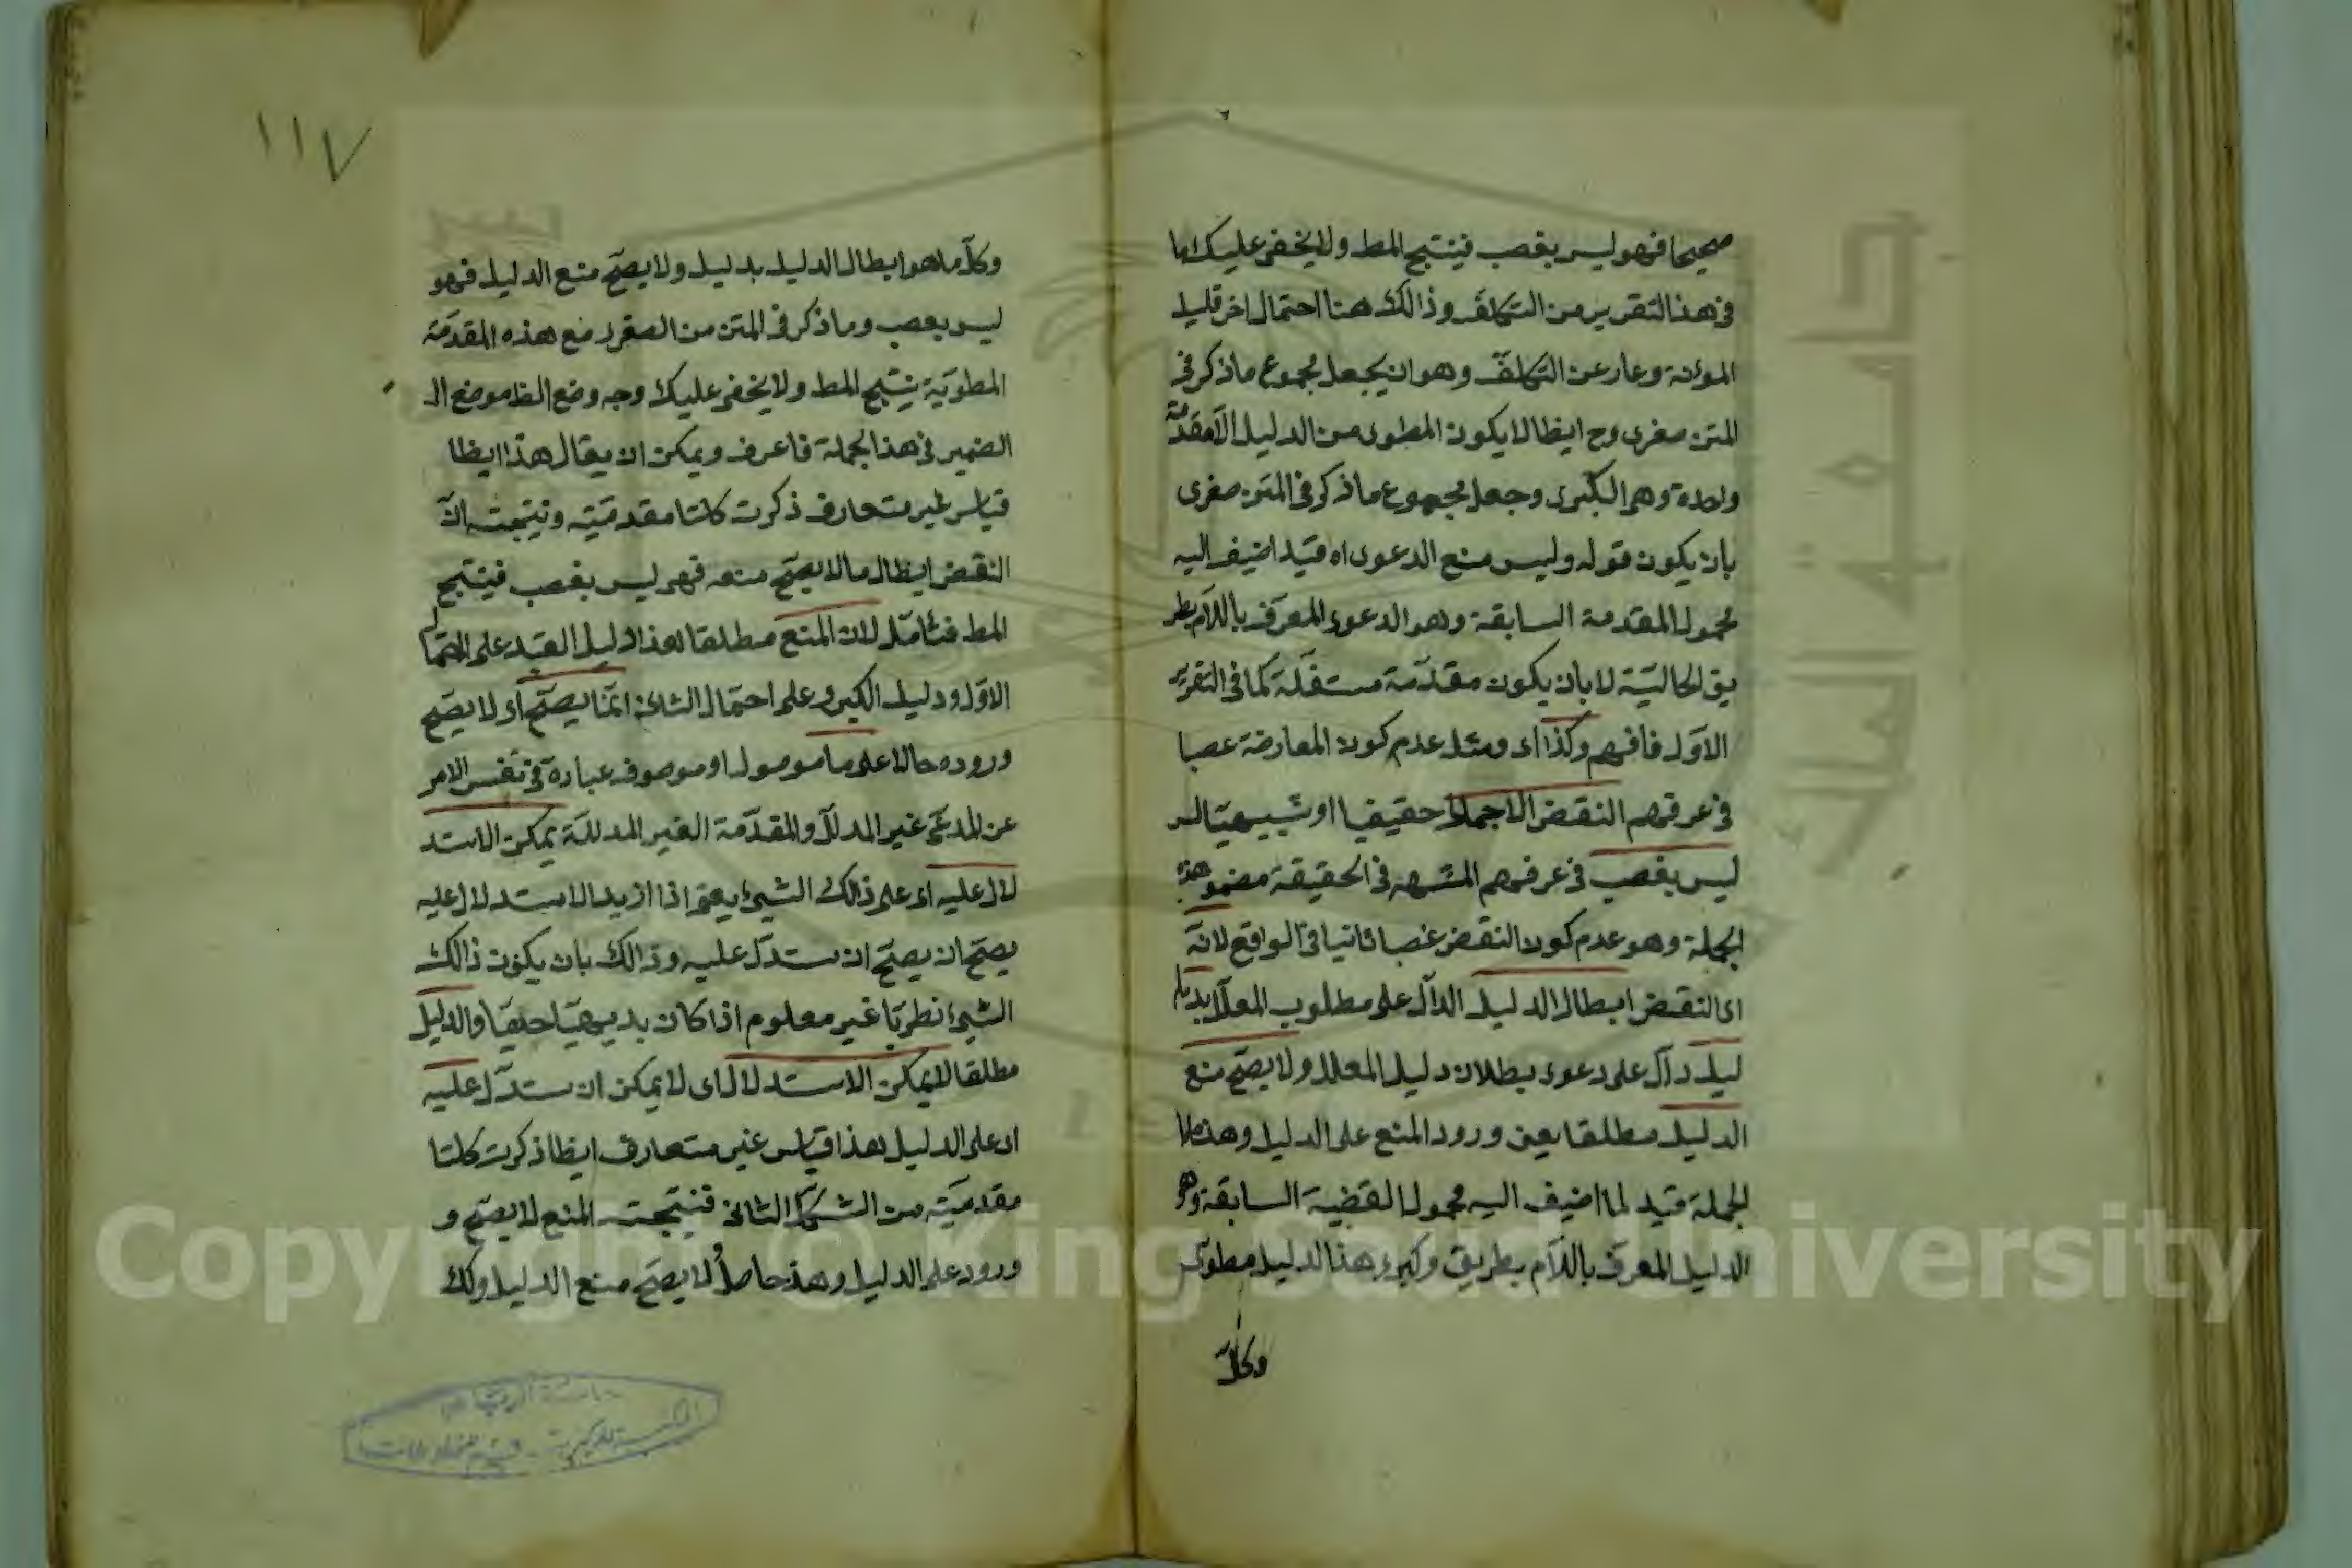 صحيحا فهو ليس بغصب فينتج المط ولا يخفى عليك اما
فى هذا التقرير من التكلف وذالك هنا احتمال اخر قليل
المؤنة وعار عن التكلف وهو ان يجعل مجموع ما ذكر فى
المتن صغرى وح ايظا لا يكون المطوى من الدليل الا مقدمة
واحدة وهى الكبرى وجعل مجموع ما ذكر فى المتن صغرى
بان يكون قوله وليس منع الدعوى اه قيد اضيف اليه
محمول المقدمة السابقة وهو الدعوى المعرف باللام بطر
يق الحالية لا بان يكون مقدمة مستقلة كما فى التقرير
الاول فافهم وكذا اى ومثل عدم كون المعارضة عصبا
فى عرفهم النقض الاجمالى حقيقيا او شبيهيا
ليس بغصب فى عرفهم المشهر فى الحقيقة مضمو هذه
الجملة وهو عدم كون النقض غصبا ثانيا فى الواقع لانه
اى النقض ابطال الدليل الدال على مطلوب المعلل بد
ليل دال على دعوى بطلان دليل المعلل ولا يصح منع
الدليل مطلقا يعنى ورود المنع على الدليل وهذه
الجملة قيد لما اضيف اليه محمول القضية السابقة وهو
الدليل المعرف باللام بطريق وكبرى هذا الدليل مطوى
وكل
١١٧
وكل ما هو ابطال الدليل بدليل ولا يصح منع الدليل فهو
ليس بعصب وما ذكر فى المتن من الصغرى مع هذه المقدمة
المطوية ينتج المط ولا يخفى عليك وجه وضع الظ موضع ال
الضمير فى هذا الجملة فاعرف ويمكن ان يقال هذا ايظا
قياس غير متعارف ذكرت كلتا مقدمتيه ونتيجته ان
النقض ابطال ما لا يصح منعه فهو ليس بغصب فينتج
المط فتامل لان المنع مطلقا هذا دليل القيد على احتمال
الاول ودليل الكبرى على احتمال الثانى انما يصح اى لا يصح
وروده حالا على ما موصول او موصوف عبارة فى نفس الامر
عن المدعى غير المدلل والمقدمة الغير المدللة يمكن الاستد
لال عليه اى على ذالك الشيئ يعنى اذا اريد الاستدلال عليه
يصح ان يصح ان يستدل عليه وذالك بان يكون ذالك
الشيئ نظريا غير معلوم اذا كان بديهيا خفيا والدليل
مطلقا لا يمكن الاستدلال اى لا يمكن ان يستدل عليه
اى على الدليل هذا قياس غير متعارف ايظا ذكرت كلتا
مقدمتيه من الشكل الثانى فنتيجته المنع لا يصح و
ورود على الدليل وهذه حاصل لا يصح منع الدليل ولك
Copyright © King Saud University